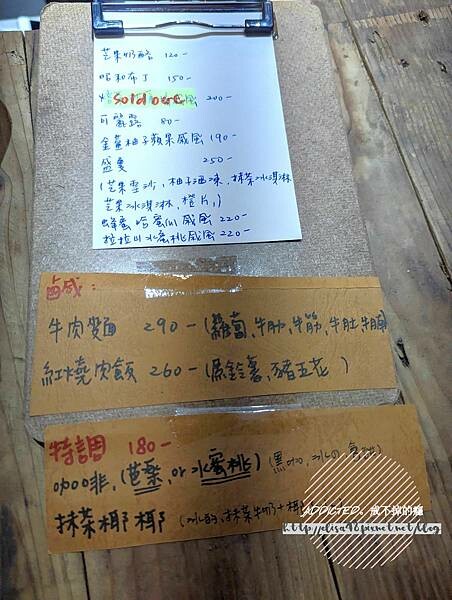 芒果奶酪 120-
昭和布丁 150-
sold out 威風 200-
可麗露 80-
金萱柚子蘋果威風 190-
盛夏 250-
(芒果雪沙, 柚子酒凍, 抹茶冰淇淋
芒果冰淇淋, 橙片,)
蜂蜜哈蜜瓜威風 220-
拉拉山水蜜桃威風 220-
鹵咸:
牛肉麵 290-(蘿蔔、牛肋、牛筋、牛肚、牛腩
紅燒肉飯 260-(馬鈴薯、豬五花)
特調 180-
咖啡, (芭樂, or 水蜜桃) (黑咖,
抹茶椰椰 (抹茶牛奶+椰
ADDICTED。戒不掉的癮
http://elisa98.pixnet.net/blog